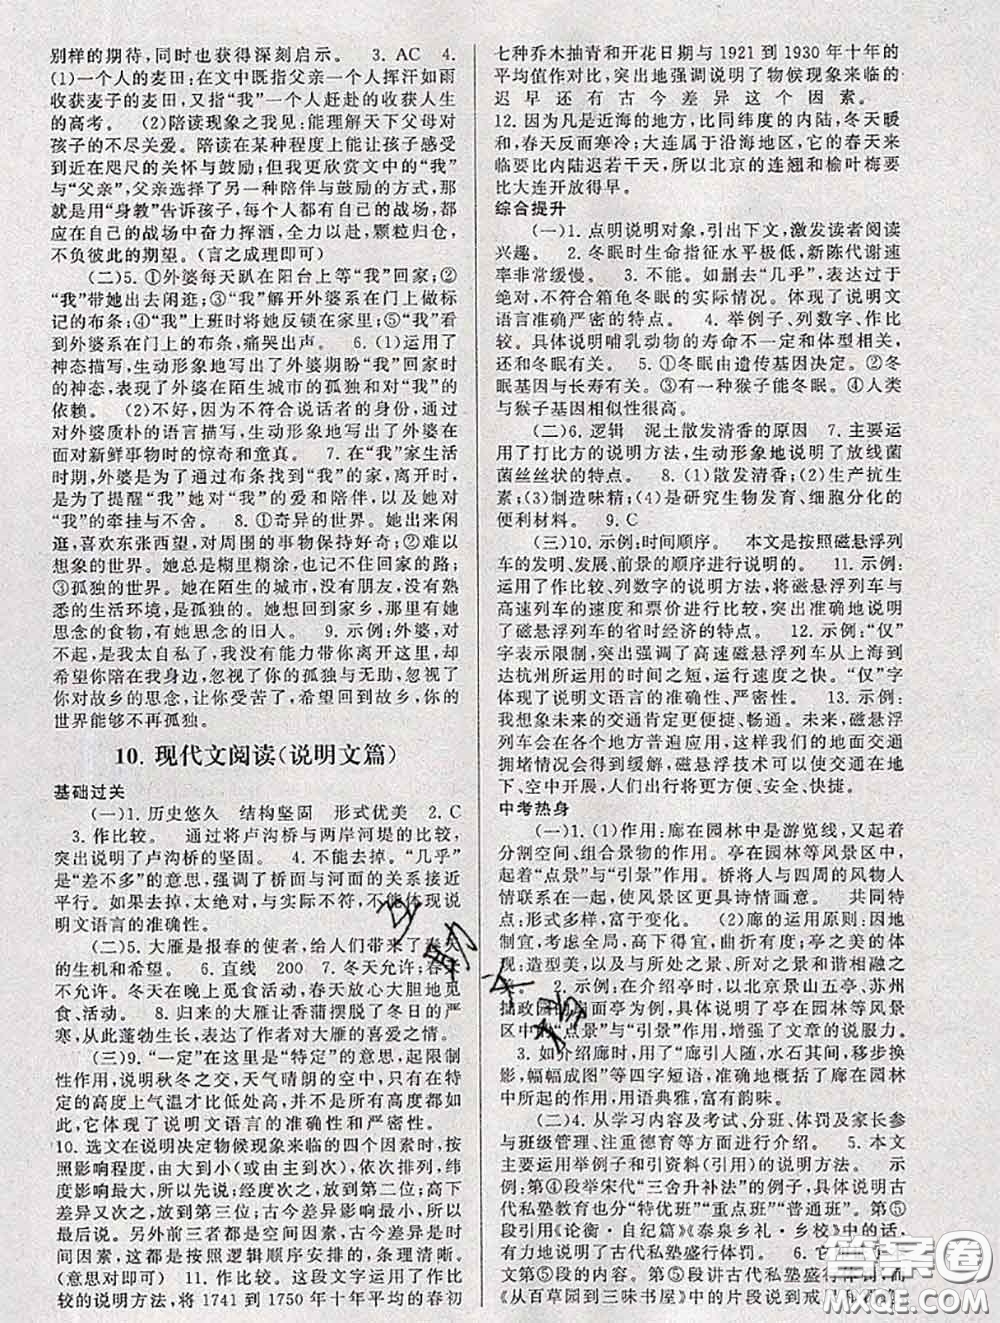 别样的期待,同时也获得深刻启示。　3. AC　4.
(1)一个人的麦田;在文中既指父亲一个人挥汗如雨
收获麦子的麦田,又指“我”一个人赶赴的收获人生
的高考。　(2)陪读现象之我见:能理解天下父母对
孩子的不尽关爱。陪读在某种程度上能让孩子感受
到近在咫尺的关怀与鼓励;但我更欣赏文中的“我”
与“父亲”,父亲选择了另一种陪伴与鼓励的方式,那
就是用“身教”告诉孩子,每个人都有自己的战场,都
应在自己的战场中奋力挥洒,全力以赴,颗粒归仓,
不负彼此的期望。(言之成理即可)
(二)5. ①外婆每天趴在阳台上等“我”回家;②
“我”带她出去闲逛;③“我”解开外婆系在门上做标
记的布条;④“我”上班时将她反锁在家里;⑤“我”看
到外婆系在门上的布条,痛哭出声。　6. (1)运用了
神态描写,生动形象地写出了外婆期盼“我”回家时
的神态,表现了外婆在陌生城市的孤独和对“我”的
依赖。　(2)不好,因为不符合说话者的身份,通过
对外婆质朴的语言描写,生动形象地写出了外婆在
面对新鲜事物时的惊奇和童真。　7. 在“我”家生活
时期,外婆是为了通过布条找到“我”的家,离开时,
是为了提醒“我”她对“我”的爱和陪伴,以及对
“我”的牵挂与不舍。　8. ①奇异的世界。她出来闲
逛,喜欢东张西望,对周围的事物保持好奇;②难以
想象的世界。她总是糊里糊涂,也记不住回家的路;
③孤独的世界。她在陌生的城市,没有朋友,没有熟
悉的生活环境,是孤独的。她想回到家乡,那里有她
思念的食物,有她思念的旧人。　9. 示例:外婆,对
不起,我太自私了,我没有能力带你离开这里,却希
望陪在我身边,忽视了你的孤独与无助,忽视了
你对故乡的思念,让你受苦了,希望回到故乡,你的
世界能够不再孤独。
10. 现代文阅读(说明文篇)
基础过关
(一)1. 历史悠久　结构坚固　形式优美　2. C
3. 作比较。　通过将卢沟桥与两岸河堤的比较,
突出说明了卢沟桥的坚固。　4. 不能去掉。“几乎”
是“差不多”的意思,强调了桥面与河面的关系接近
平行。如果去掉,太绝对,与实际不符,不能体现说
明文语言的准确性。
(二)5. 大雁是报春的使者,给人们带来了春天
的生机和希望。　6. 直线　200　7. 冬天允许;春天
不允许。冬天在晚上觅食活动,春天放心大胆地觅
食、活动。　8. 归来的大雁让香蒲摆脱了冬日的严
寒,从此蓬勃生长。表达了作者对大雁的喜爱之情。
(三)9. “一定”在这里是“特定”的意思,起限制
性作用,说明秋冬之交,天气晴朗的空中,只有在特
定的高度上气温才比低处高,并不是所有的高度都
如此,它体现了说明文语言的准确性和严密性。
10. 选文在说明决定物候现象来临的四个因素时,按
照影响程度,由大到小(或由主到次),依次排列,纬
度影响最大,所以先说;经度次之,放到第二位;高下
差异又次之,放到第三位;古今差异是时间因素,放
到最后。另外前三者都是空间因素,古今差异是
时间因素,这都是按照逻辑顺序安排的,条理清晰。
(意思对即可)　11. 作比较。这段文字运用了作比
较的说明方法,将 1741 到 1750 年十年平均的春初
七种乔木抽青和开花日期与 1921 到 1930 年十年的
平均值作对比,突出地强调说明了物候现象来临的
迟早还有古今差异这个因素。
12. 因为凡是近海的地方,比同纬度的内陆,冬天暖
和,春天反而寒冷;大连属于沿海地区,它的春天来
要比内陆迟若干天,所以北京的连翘和榆叶梅要
比大连开放得早。
综合提升
(一)1. 点明说明对象,引出下文,激发读者阅读
兴趣。　2. 冬眠时生命指征水平极低,新陈代谢速
率非常缓慢。　3. 不能。如删去“几乎”,表达过于
绝对,不符合箱龟冬眠的实际情况。体现了说明文
语言准确严密的特点。　4. 举例子、列数字、作比
较。具体说明哺乳动物的寿命不一定和体型相关,
还和冬眠有关。　5. ①冬眠由遗传基因决定。②冬
眠基因与长寿有关。③有一种猴子能冬眠。④人类
与猴子基因相似性很高。
(二)6. 逻辑　泥土散发清香的原因　7. 主要运
用了打比方的说明方法,生动形象地说明了放线菌
菌丝丝状的特点。　8. (1)散发清香;(2)生产抗生
素;(3)制造味精;(4)是研究生物发育、细胞分化的
便利材料。　9. C
(三)10. 示例:时间顺序。　本文是按照磁悬浮列
车的发明、发展、前景的顺序进行说明的。　11. 示例:
运用了作比较、列数字的说明方法,将磁悬浮列车与
高速列车的速度和票价进行比较,突出准确地说明
了磁悬浮列车的省时经济的特点。　12. 示例:“仅”
字表示限制,突出强调了高速磁悬浮列车从上海到
达杭州所运用的时间之短,运行速度之快。“仅”字
体现了说明文语言的准确性、严密性。　13. 示例:
我想象未来的交通肯定更便捷、畅通。未来,磁悬浮
列车会在各个地方普遍应用,这样我们的地面交通
拥堵情况会得到缓解,磁悬浮技术可以使交通在地
下、地上和天空同时进行,给人们的生活带来便利。
中考热身
(一)1. (1)作用:廊在园林中是游览线,又起着
分割空间、组合景物的作用。亭在园林等风景区中,
起着“点景”与“引景”作用。桥将人与四周的风物人
情联系在一起,使风景区更具诗情画意。　共同特
点:形式多样,富于变化。　(2)廊的运用原则:因地
制宜,考虑全局,高下得宜,曲折有度;亭之美的体
现:造型美,以及与所处之景、所对之景和谐相融之
美。　2. 示例:在介绍亭时,以北京景山五亭、苏州
拙政园的扇面亭为例,具体说明了亭在园林等风景
区中“点景”与“引景”作用,增强了文章的说服力。
3. 如介绍廊时,用了“廊引人随,水石其间,移步换
影,幅幅成图”等四字短语,准确地概括了廊在园林
中所起的作用,用语典雅,富有韵味。
(二)4. 从学习内容及考试、分班、体罚及家长参
与班级管理、注重德育等方面进行介绍。　5. 本文
主要运用举例子和引资料(引用)的说明方法。　示
例:第④段举宋代“三舍升补法”的例子,具体说明古
代私塾教育也分“特优班”“重点班”“普通班”。第⑤
段引用《论衡·自纪篇》《泰泉乡礼·乡校》中的话,
有力地说明了古代私塾盛行体罚。　6.
文第⑤段的一个例证,第⑤段讲古代私塾盛行体罚,而
《从百草园到三味书屋》中的片段说到
答案圈
MXQE.COM